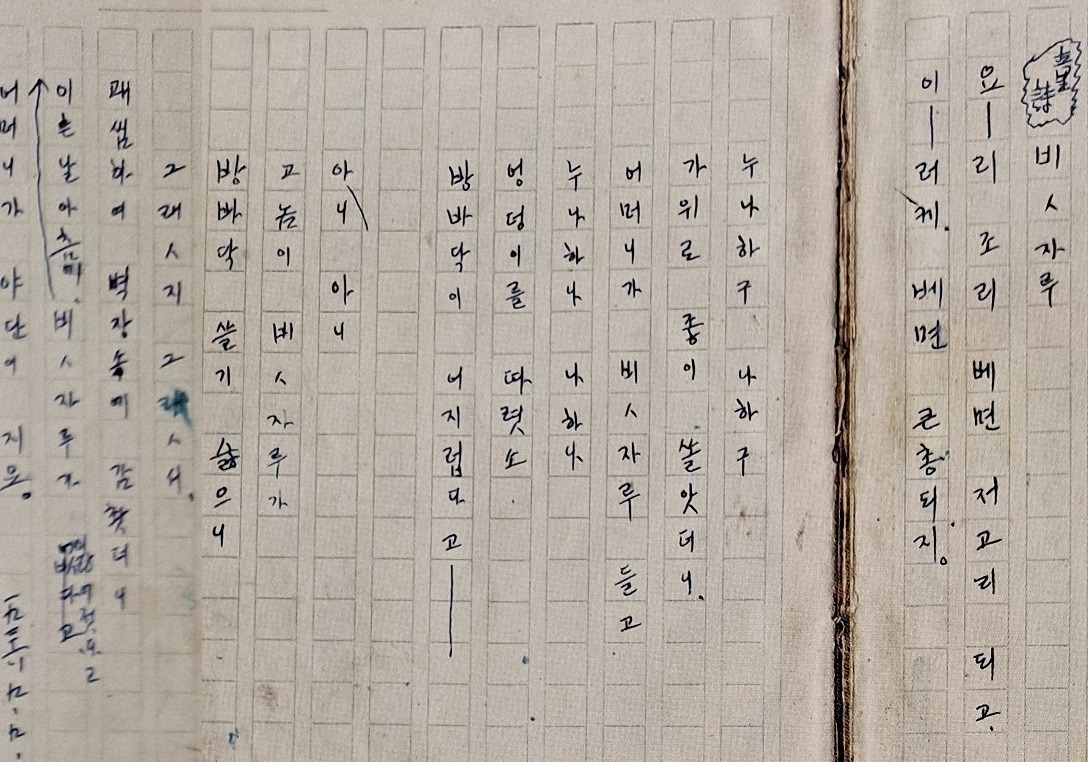 童詩 비ㅅ자루
요—리 조리 베면 저고리 되고.
이—러케. 베면 큰총되지。
누나하구 나하구
가위로 좋이 쏠앗더니.
어머니가 비ㅅ자루 들고
누나하나 나하나
엉덩이를 따렷소.
방바닥이 어지럽다고——
아니 아니
고놈이 비ㅅ자루가
방바닥 쓸기 슳으니
그래ㅅ지 그래ㅅ서.
괘씸하여 벽장속에 감촷더니
이튼날아츰에 비ㅅ자루가 없다고
어머니가 야단이 지요。